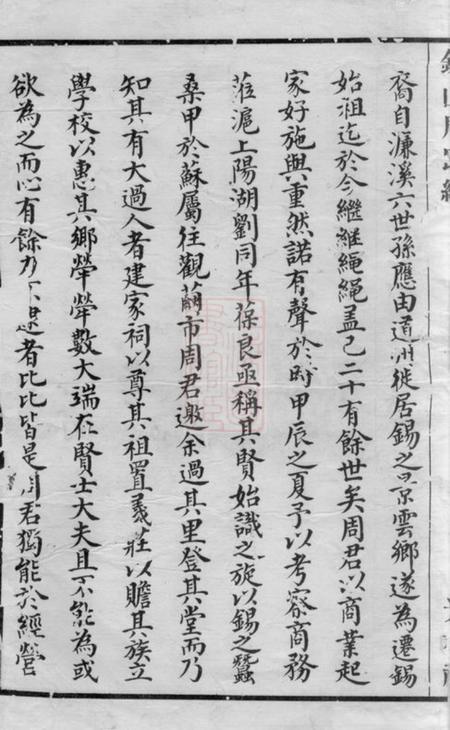 裔自濂溪六世孫應由道洲徙居錫之景雲鄉遂為遷錫
始祖迄於今繼繼繩繩盖已二十有餘世矣周君以商業起
家好施與重然諾有聲於時甲辰之夏予以考察商務
蒞滬上陽湖劉同年葆良亟稱其賢始識之旋以錫之蠶
桑甲於蘇屬往觀繭市周君邀余過其里登其堂而乃
知其有大過人者建家祠以尊其祖置義莊以贍其族立
學校以惠其鄉犖犖數大端在賢士大夫且不能為或
欲為之而心有餘力不逮者比比皆是周君獨能於經營